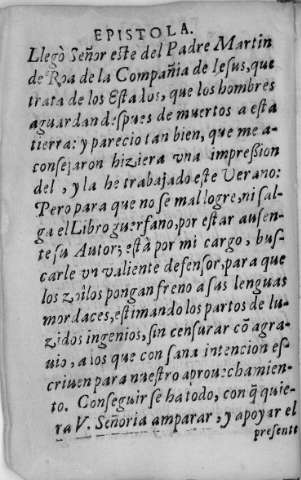 EPISTOLA.
Llegò Señor este del Padre Martin
de Roa de la Compañia de Iesus, que
trata de los Estados, que los hombres
aguardan despues de muertos a esta
tierra: y parecio tan bien, que me a-
consejaron hiziera vna impression
del, y la he trabajado este Verano:
Pero para que no se mal logre, ni sal-
ga el Libro guerfano, por estar ausen-
te su Autor; està por mi cargo, bus-
carle vn valiente defensor, para que
los zoilos pongan freno a sus lenguas
mordaces, estimando los partos de lu-
zidos ingenios, sin censurar cõ agra-
uio, a los que con sana intencion es-
criuen para nuestro aprouechamien-
to. Conseguir se ha todo, con q̃ quie-
ra V. Señoria amparar, y apoyar el
presente